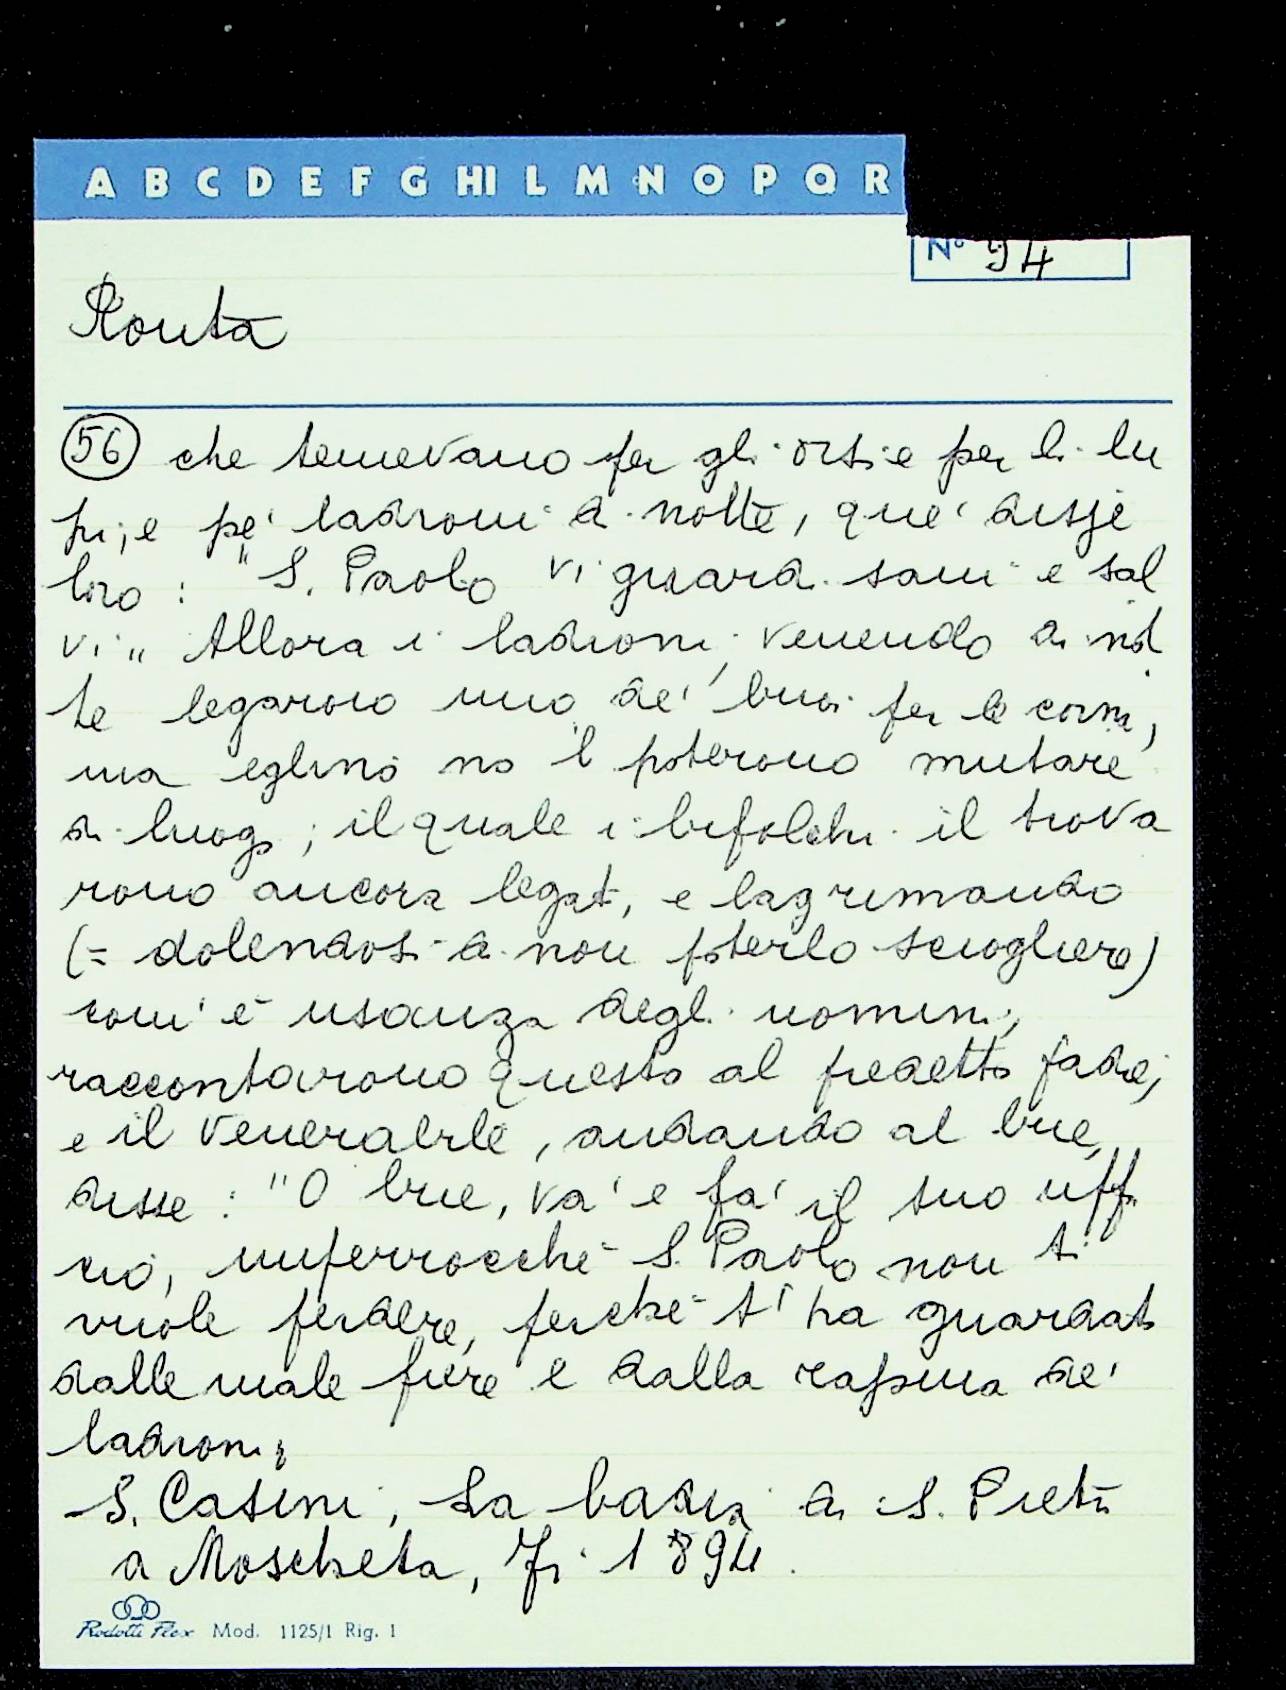 A B C D E F G HI L M N O P Q R
N° 94
Ronta
56 che temevano per gli orsi e per li lu
pi; e pe' ladroni di notte, que' disse
loro: "S. Paolo vi guardi sani e sal
vi" Allora i ladroni, venendo di not
te legarono uno de' buoi per le corna,
ma eglino no 'l poterono mutare
di luogo; il quale i bifolchi il trova
rono ancora legato, e lagrimando
(= dolendosi di non poterlo sciogliere)
com' è usanza degli uomini,
raccontarono questo al predetto padre;
e il venerabile, andando al bue,
disse: "O bue, va' e fa' il tuo uffi
cio, imperrocché S. Paolo non ti
vuole perdere, perché t' ha guardato
dalle male fiere e dalla rapina de'
ladroni"
S. Casini, La badia di S. Pietro
a Moscheta, Fi. 1894.
Rodotti Flex Mod. 1125/1 Rig. 1